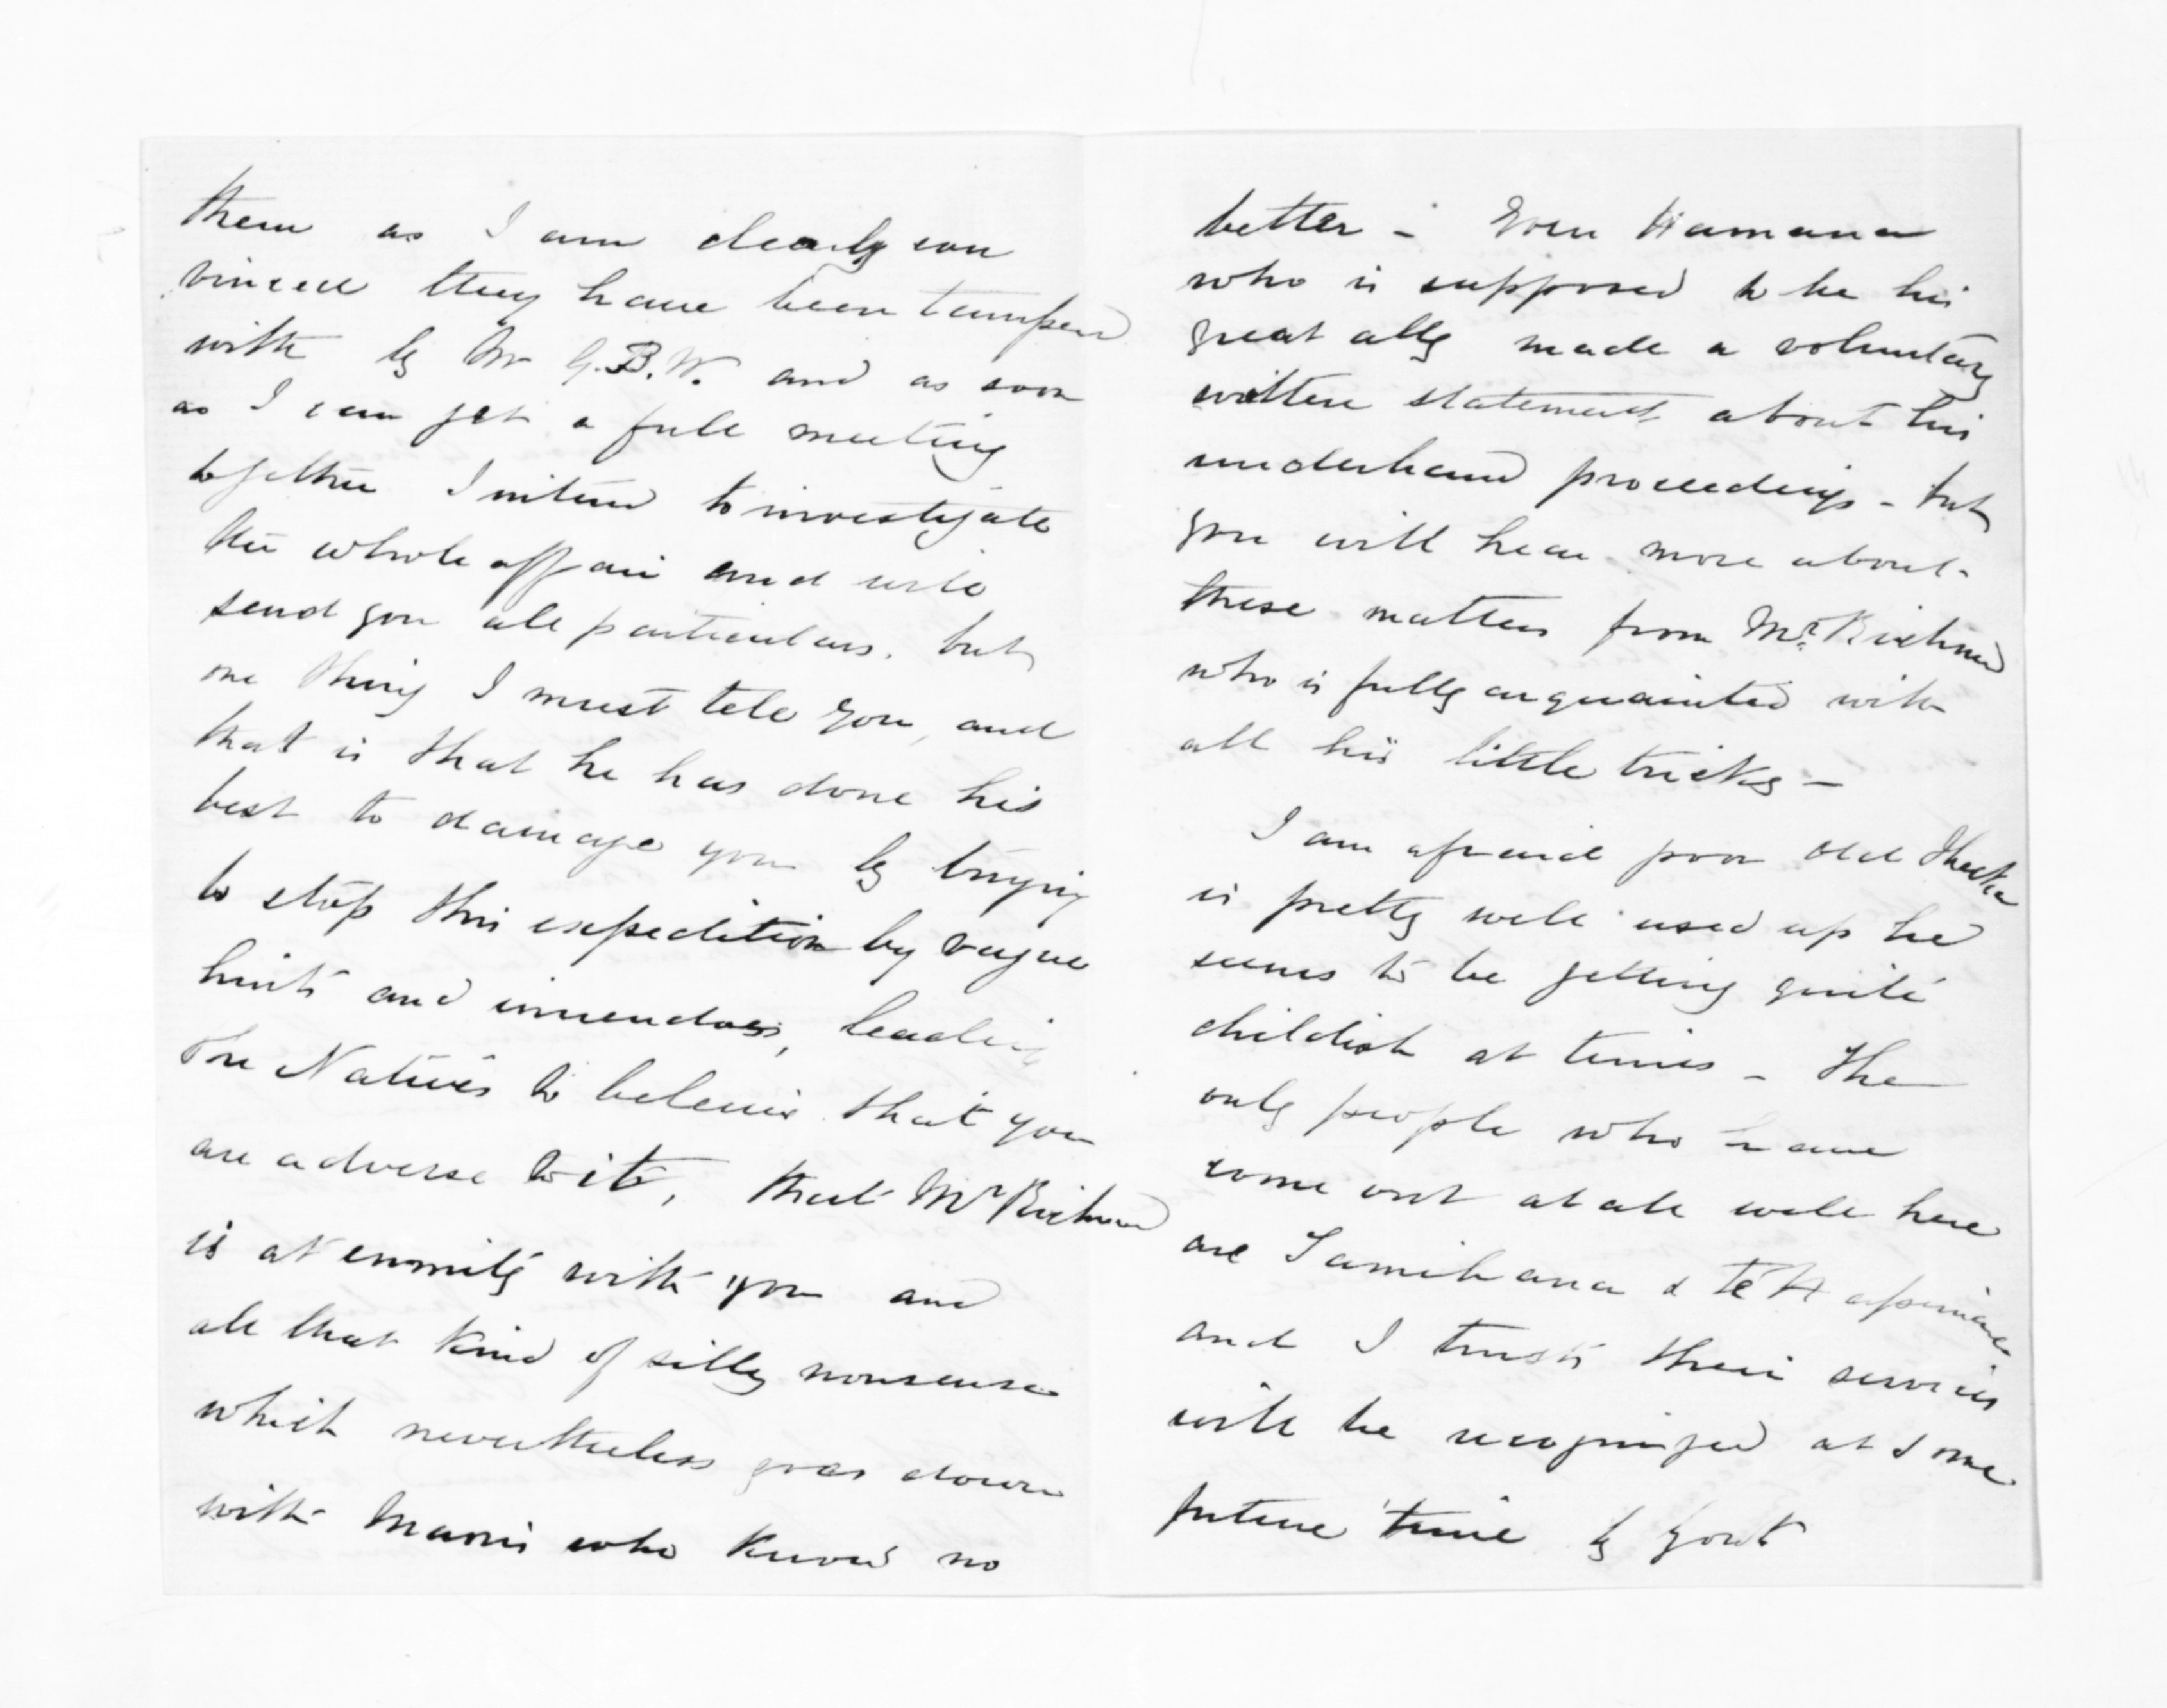 them as I am clearly con
vinced they have been tampered
with by Mr G.B.W. and as soon
as I can get a full meeting
together I intend to investigate
the whole affair and will
send you all particulars. but
one thing I must tell you, and
that is that he has done his
best to damage you by trying
to stop this expedition by vague
hints and innendoes, leading
the Natives to beleive that you
are adverse to it, that Mr Richmond
is at enmity with you and
all that kind of silly nonsense
which nevertheless goes down
with Maoris who know no
better - Even Hamana
who is supposed to be his
great ally made a voluntary
written statement about his
underhand proceedings - but
you will hear more about
these matters from Mr. Richmond
who is fully acquainted with
all his little tricks -
I am afraid poor old
is pretty well used up he
seems to be getting quite
childish at times - The
only people who have
come out at all well here
are Tamihana & Te
and I trust their services
will be recognized at some
future time by Govt